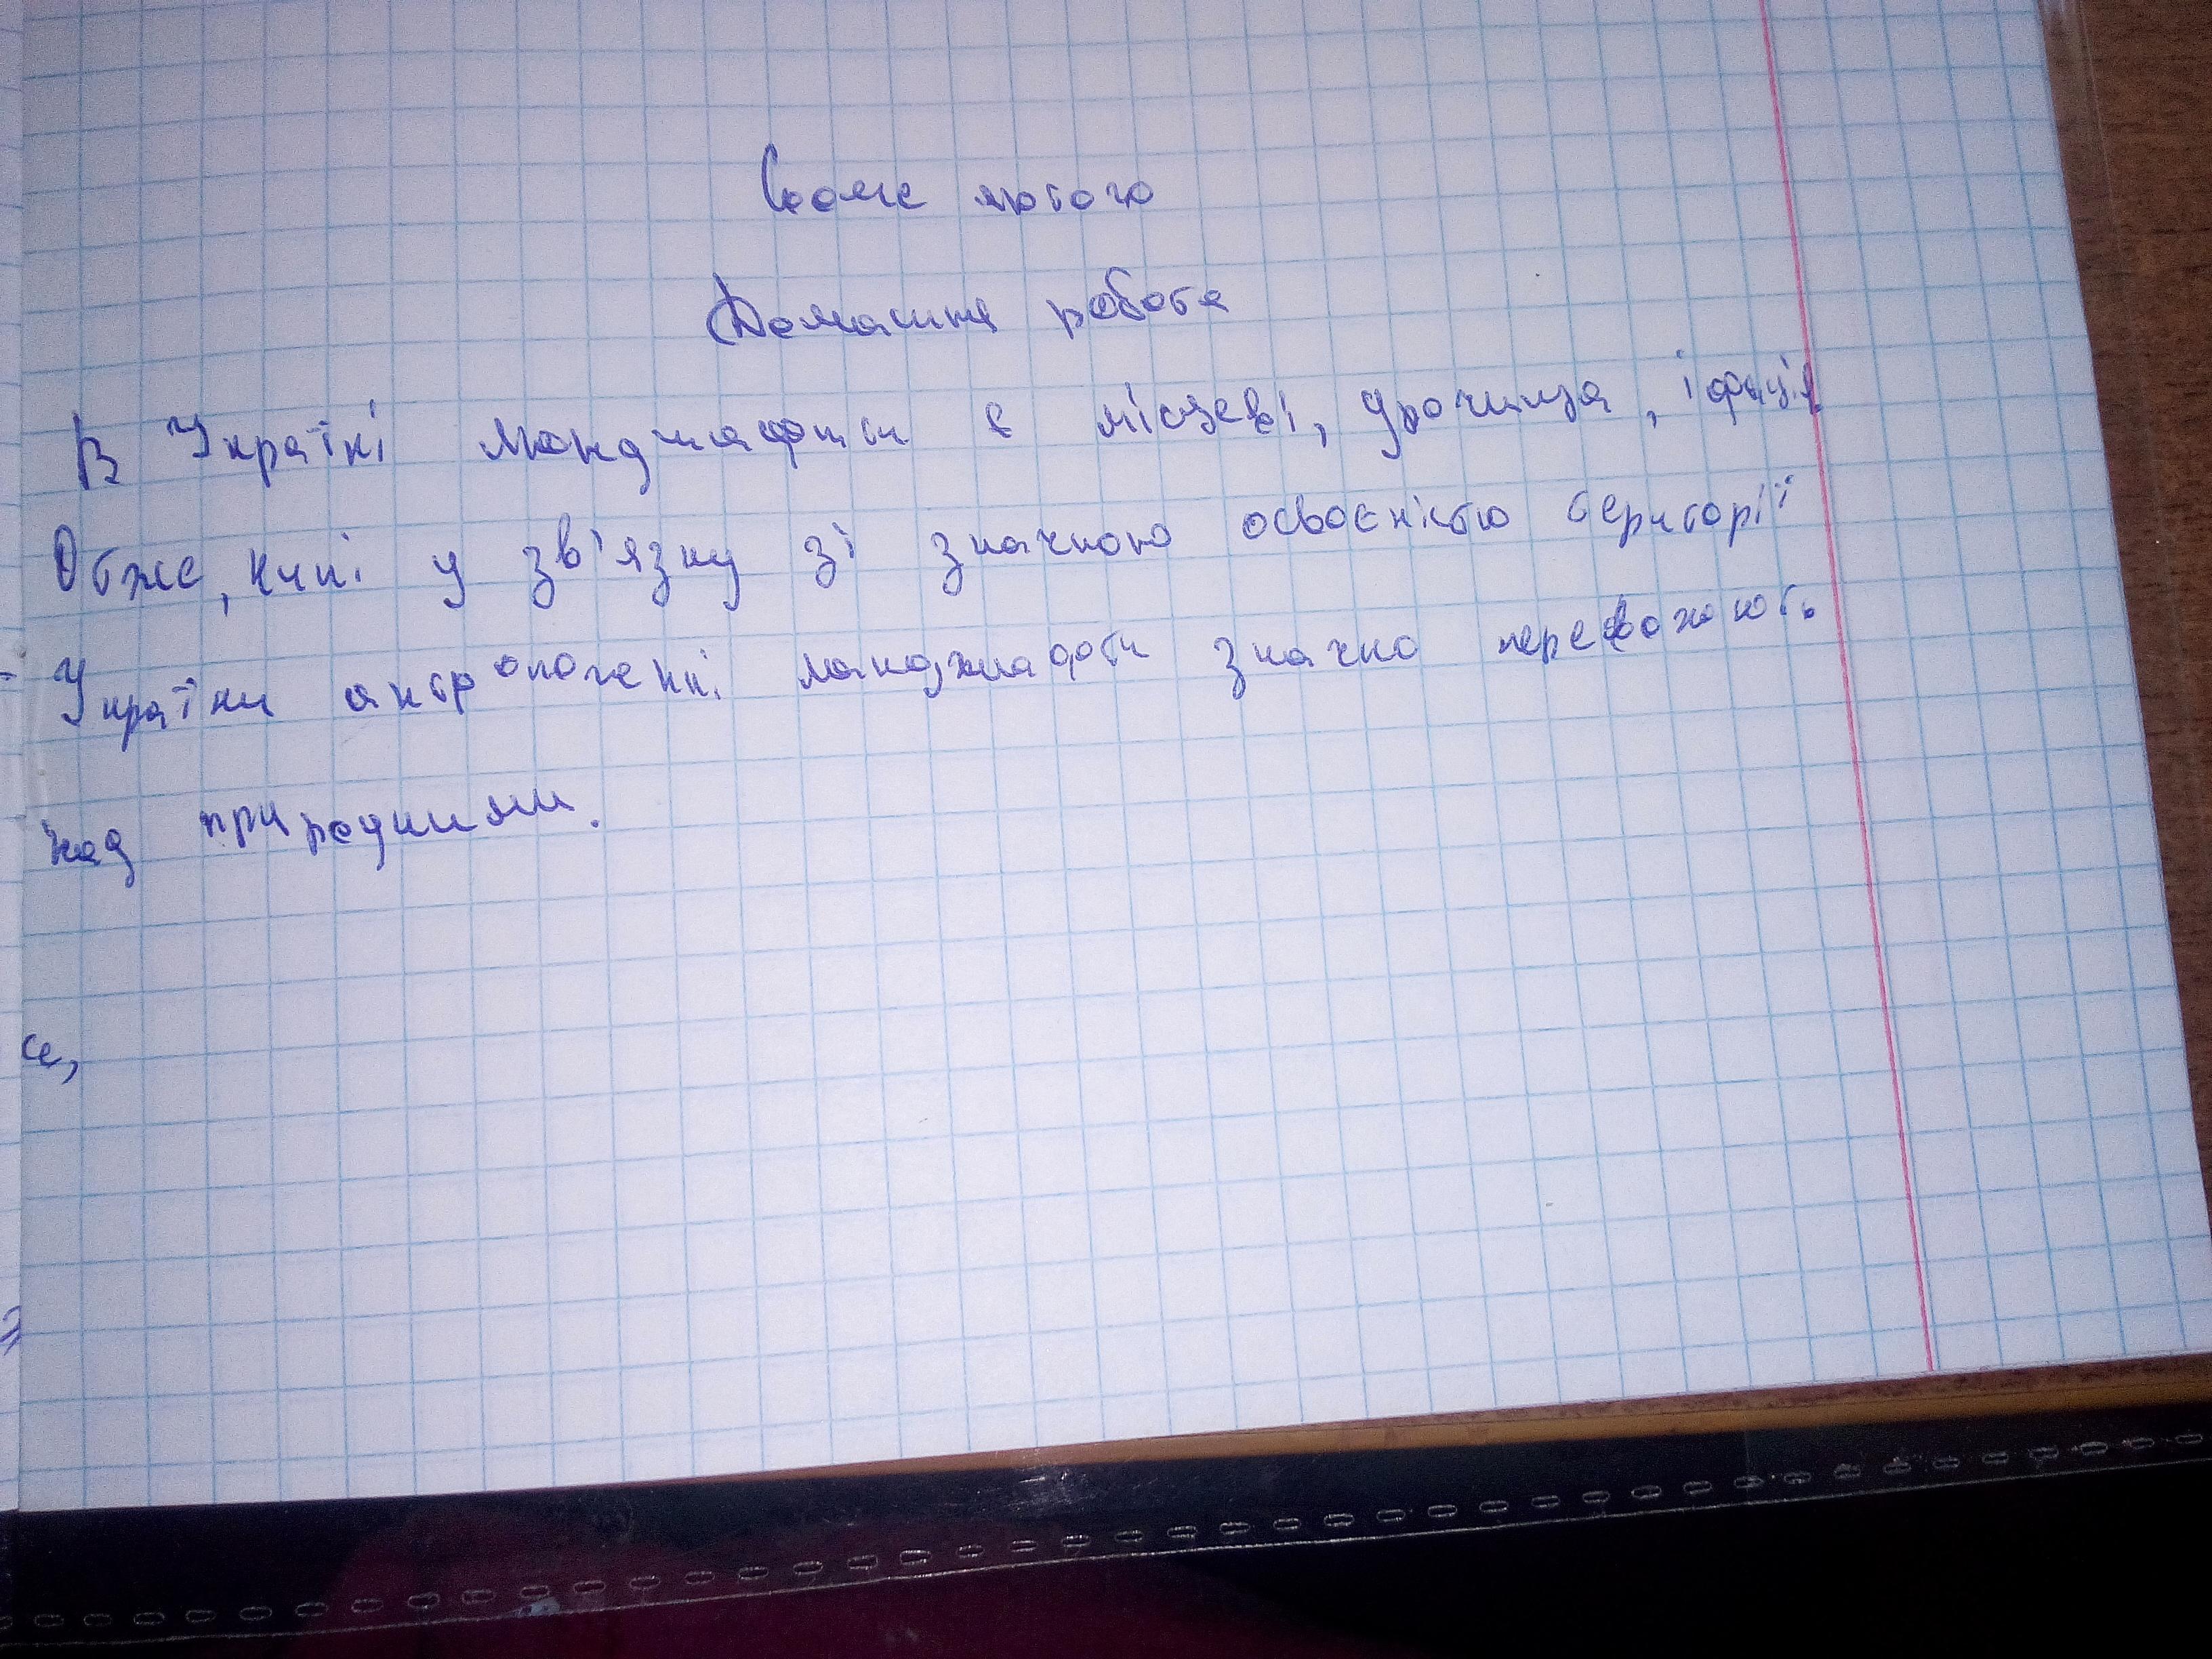 Сьоме лютого
Домашня робота
В Україні ландшафти є місцеві, урочища, і фації
Отже, нині у зв'язку зі значною освоєністю території
України антропогенні ландшафти значно переважають
над природними.
се,